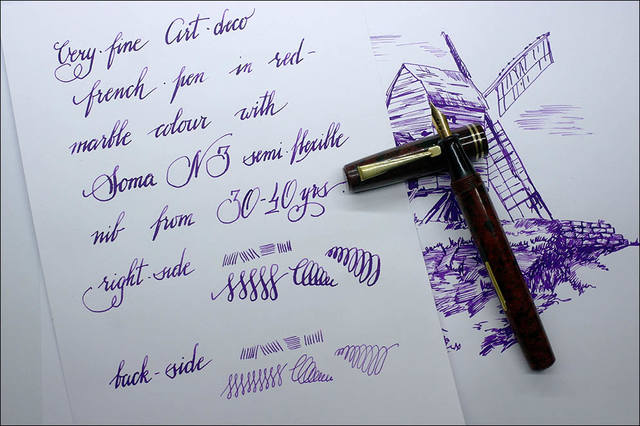 Very-fine Art-deco
french pen in red-
marble colour with
Soma N3 semi-flexible
nib from 30-40 yrs
right-side
back-side